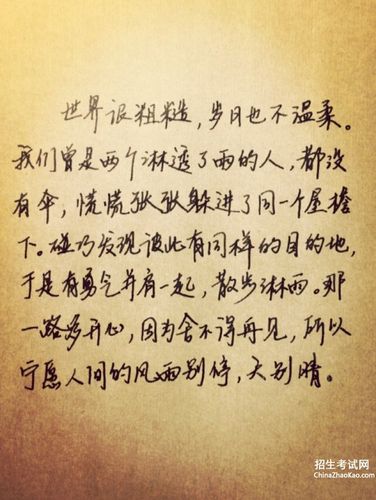 世界很粗糙，岁月也不温柔。
我们曾是两个淋透了雨的人，都没
有伞，慌慌张张躲进了同一个屋檐
下。碰巧发现彼此有同样的目的地，
于是有勇气并肩一起，散步淋雨。那
一路多开心，因为舍不得再见，所以
宁愿人间的风雨别停，天别晴。
招生考试网
ChinaZhaoKao.com